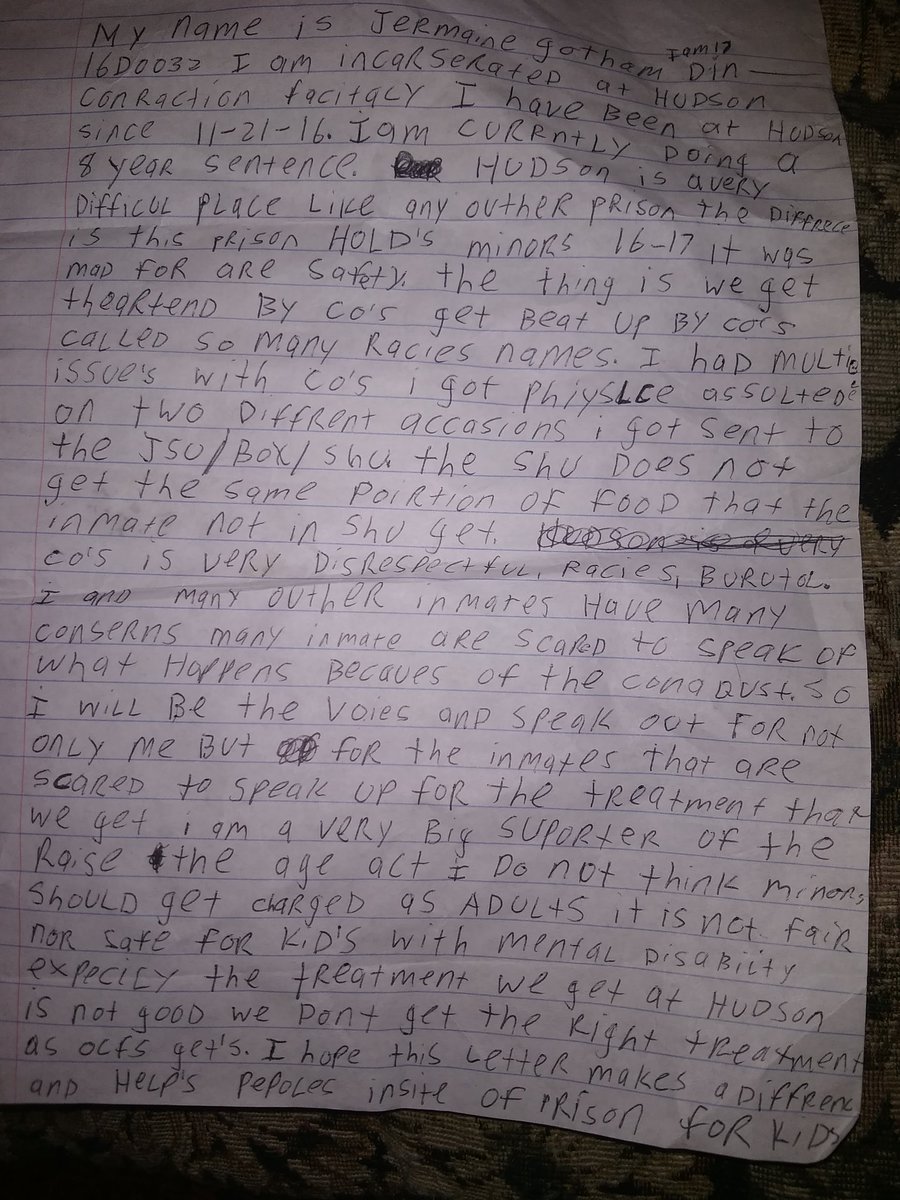 My name is Jermaine gotham I am 17
16D0032 I am incarserated at Din
conraction facitacy I have been at HUDSON
since 11-21-16. I am currntly Doing a
8 year sentence. HUDSon is a very
Difficul place like any outher prison the Diffrece
is this prison HOLD'S minors 16-17 it was
mad for are safety. the thing is we get
theartend By co's get Beat up By co's
called so many Racies names. I had multi
issue's with co's i got phiyslce assulted
on two Diffrent accasions i got sent to
the JSU/BOX/shu. the shu Does not
get the same poirtion of food that the
inmate not in shu get.
co's is very Disrespectful, racies, Burutal.
I and many outher inmates Have many
conserns many inmate are scared to speak of
what Happens Becaues of the conaqust. so
I will Be the voies and speak out for not
only me But for the inmates that are
scared to speak up for the treatment that
we get i am a very Big suporter of the
Raise the age act I Do not think minors
should get charged as ADULTS it is not fair
nor safe for KiD'S with mental Disability
expecily the treatment we get at HUDSON
is not good we Dont get the Right treatment
as ocfs get's. I hope this Letter makes a Diffrenc
and Help's pepoles insite of prison for KiDs